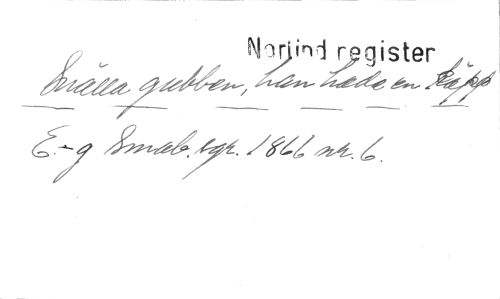 Norlind register
Snälla gubben, han hade en käpp
E-g Småb. sgr. 1866 nr. 6.